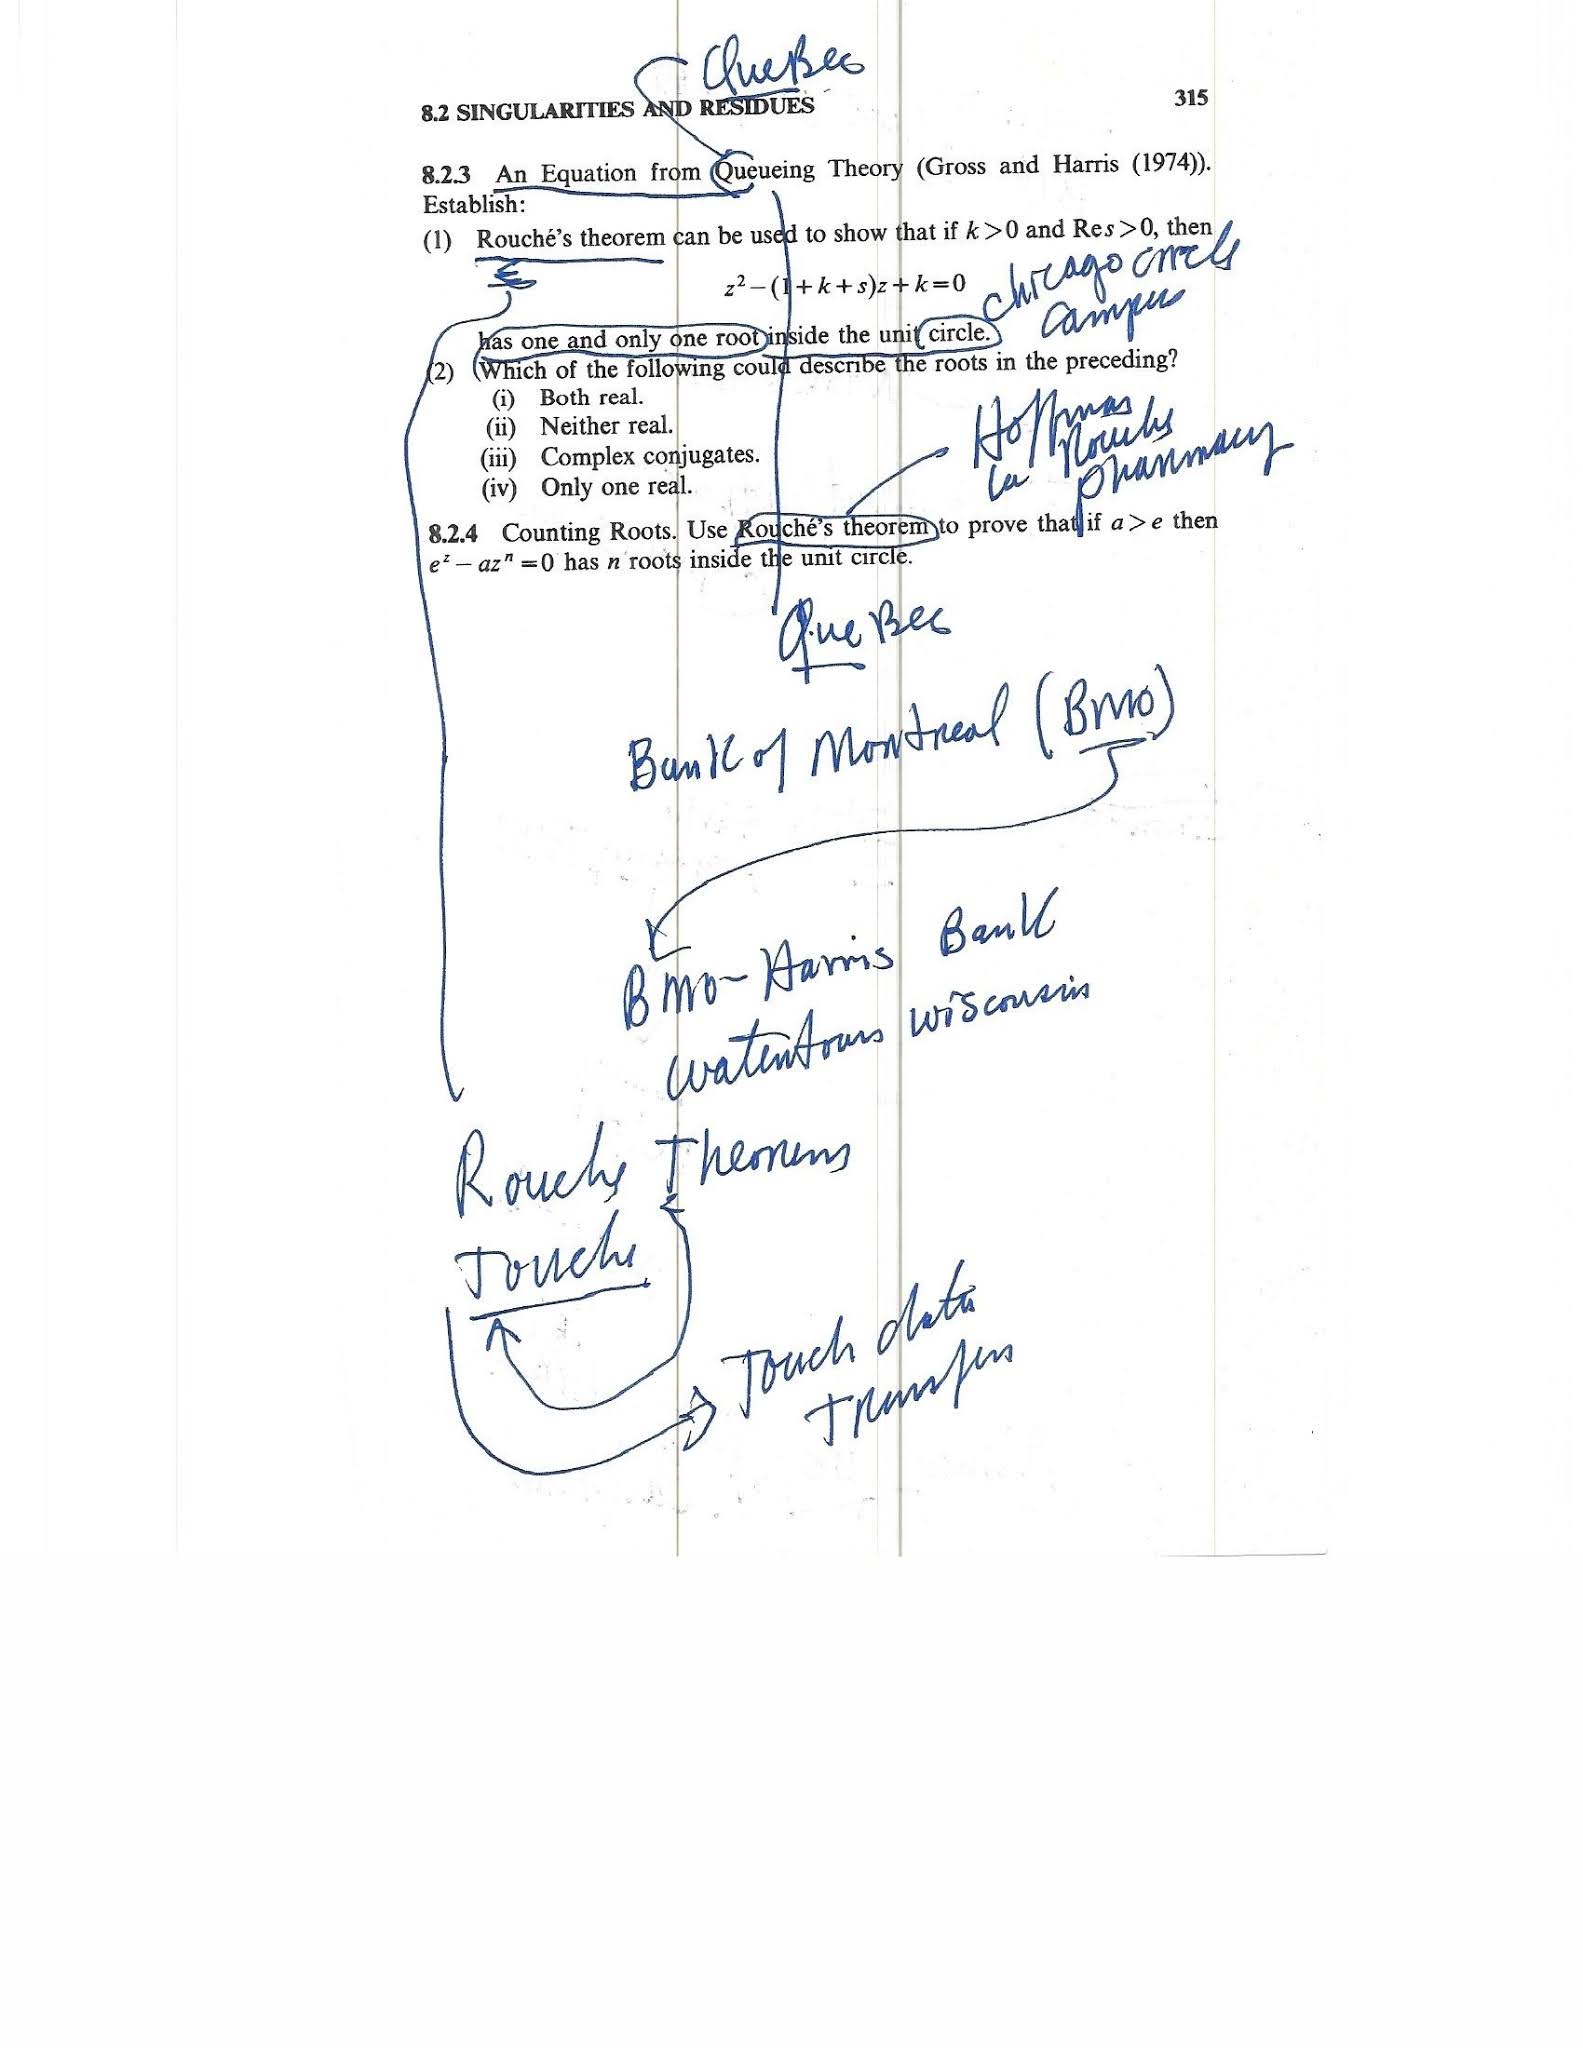 QueBec
8.2 SINGULARITIES AND RESIDUES 315
8.2.3 An Equation from Queueing Theory (Gross and Harris (1974)).
Establish:
(1) Rouché's theorem can be used to show that if k>0 and Re s>0, then
z²−(1+k+s)z+k=0
chicago circle
campus
has one and only one root inside the unit circle.
(2) Which of the following could describe the roots in the preceding?
(i) Both real.
(ii) Neither real.
(iii) Complex conjugates.
(iv) Only one real.
Hoffman
La Rouche
pharmacy
8.2.4 Counting Roots. Use Rouché's theorem to prove that if a>e then
eᶻ − azⁿ = 0 has n roots inside the unit circle.
QueBec
Bank of Montreal (BMO)
BMO-Harris Bank
watertown wisconsin
Rouche Theorem
Touche
Touch data
Transfer